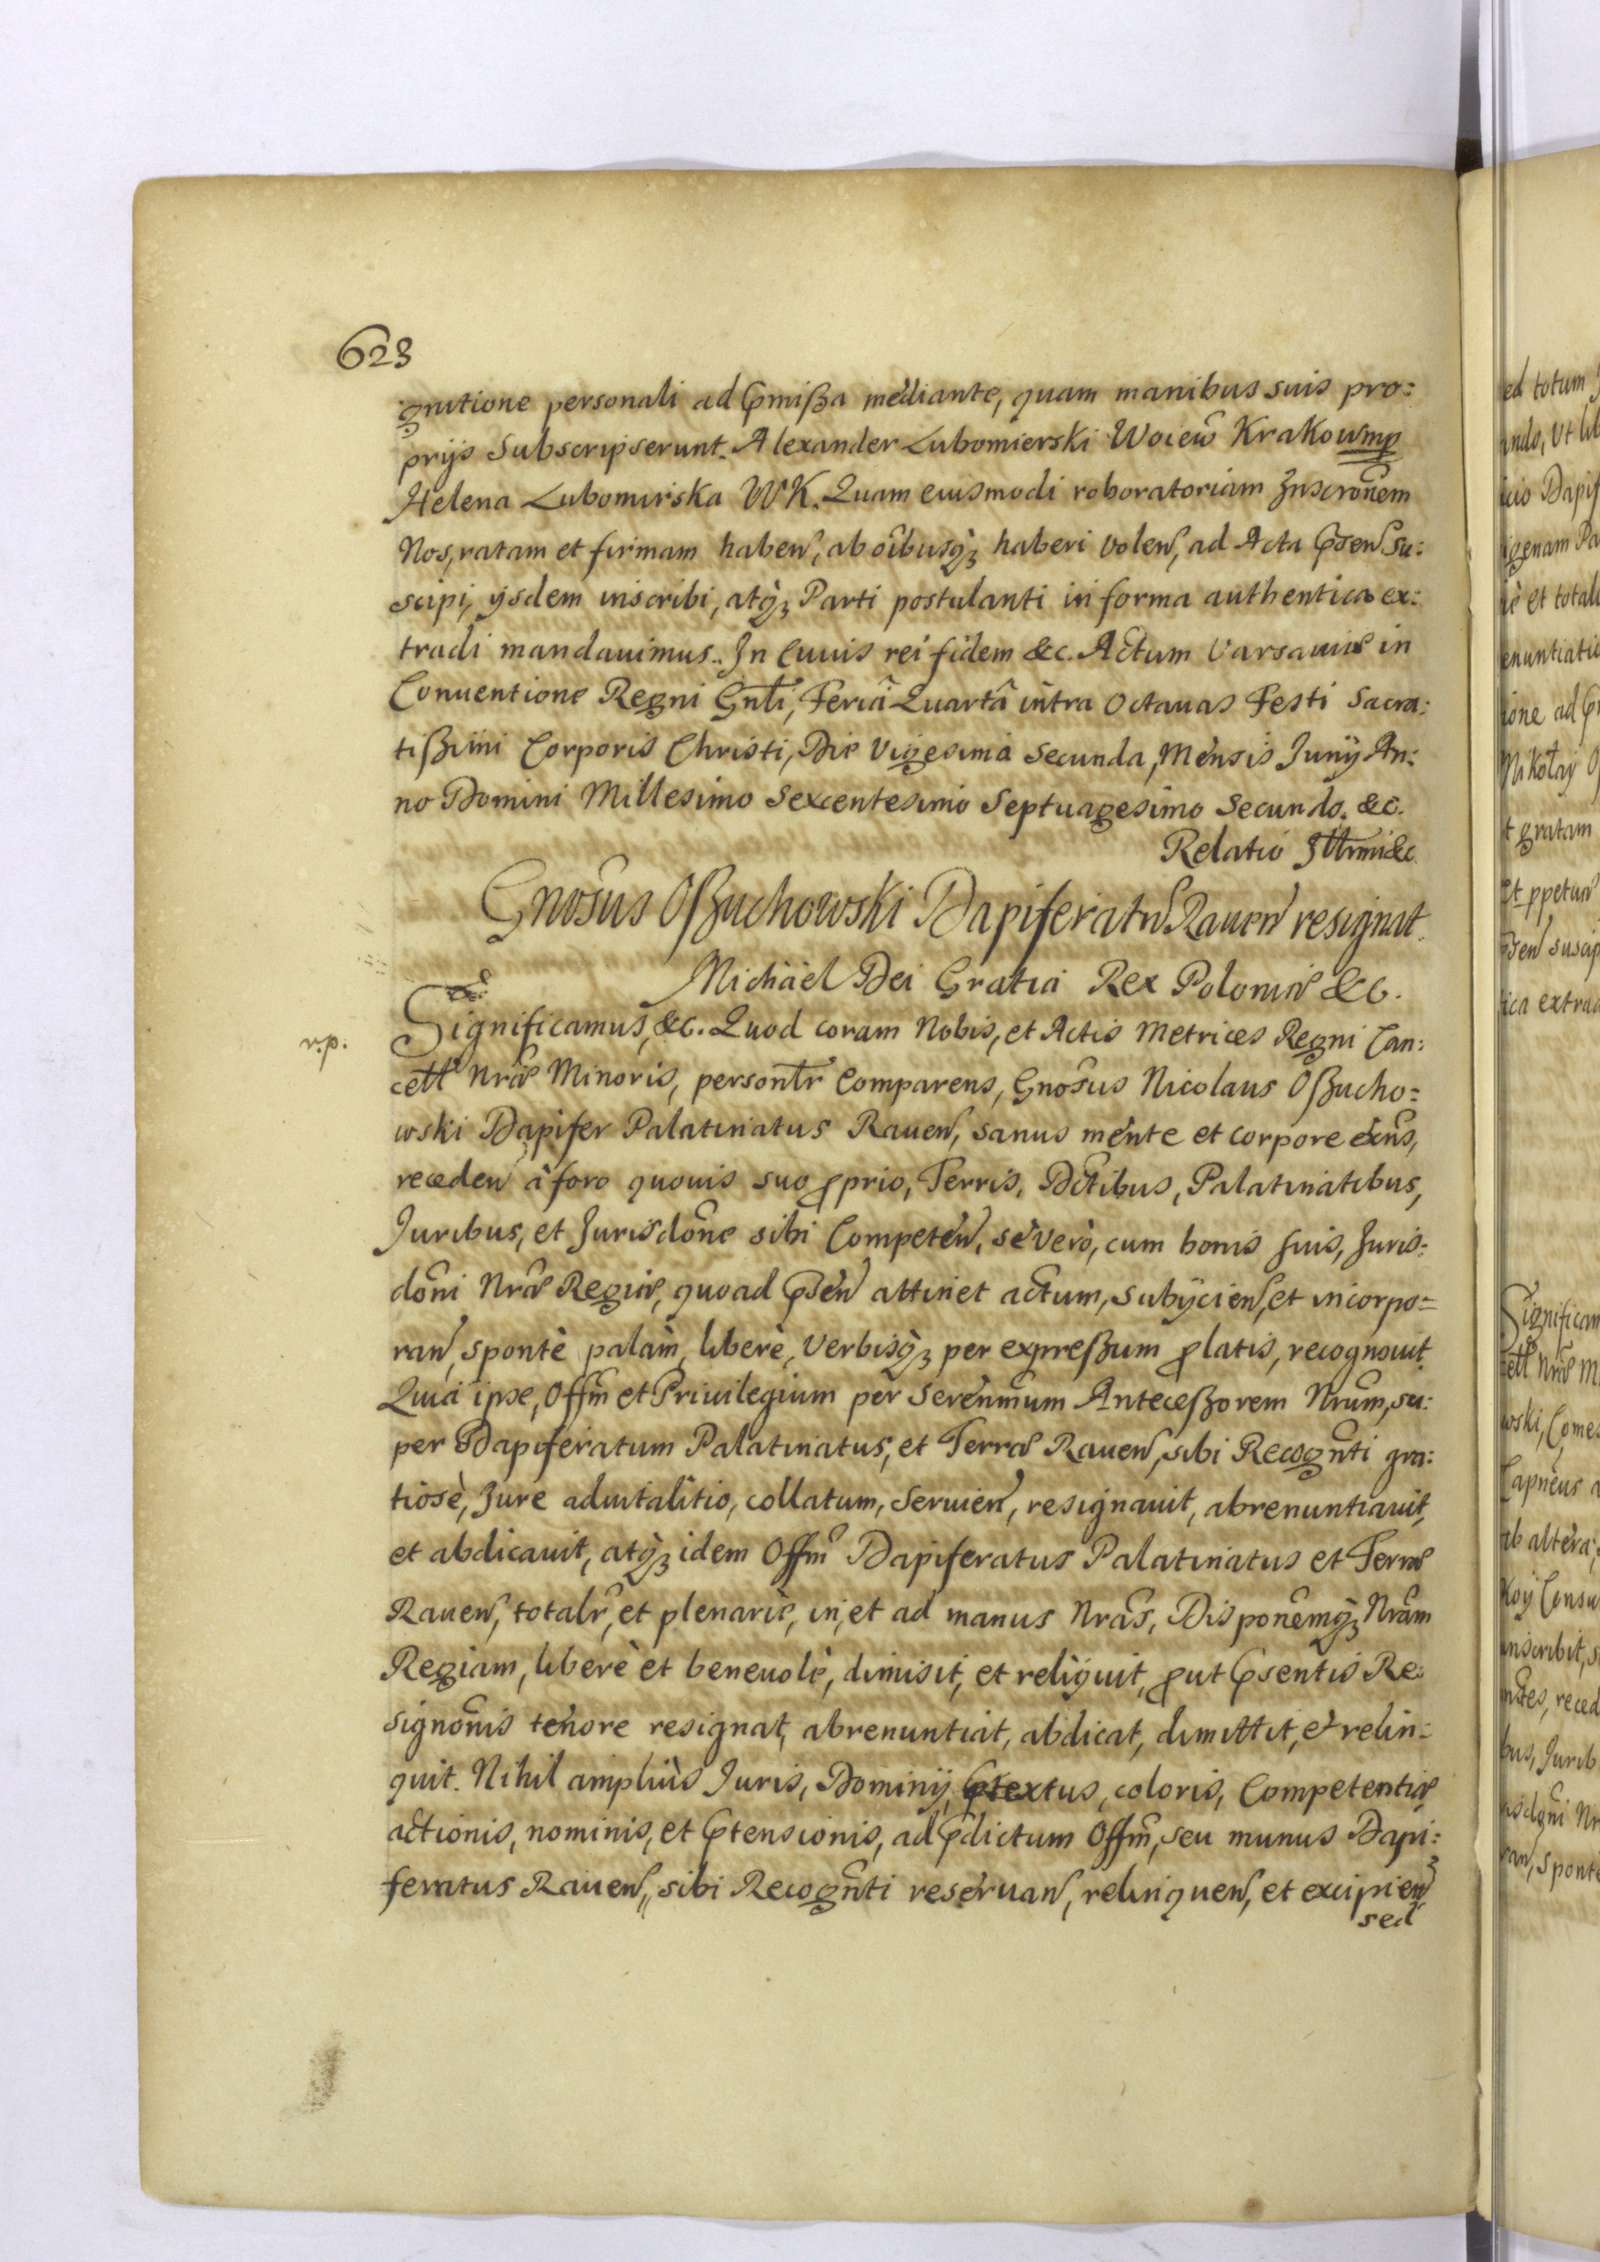 623
gnitione personali ad p̄mißa mediante, quam manibus suis pro:
prijs Subscripserunt. Alexander Lubomierski Woiew̃ Krakow mp
Helena Lubomirska WK. Quam eiusmodi roboratoriam Inscrõnem
Nos, ratam et firmam haben̄, ab oĩbusq3 haberi volen̄, ad Acta p̄sen̄ su:
scipi, ijsdem inscribi, atq3 Parti postulanti in forma authentica ex:
tradi mandauimus. In Cuius rei fidem &c. Actum Varsauiæ in
Conuentione Regni Gñli, Feriâ Quartâ intra Octauas Festi Sacra:
tißimi Corporis Christi, Die Vigesima Secunda, Mensis Junij An:
no Domini Millesimo Sexcentesimo Septuagesimo Secundo. &c.
Relatio Illrmi &c.
Gnõsus Oßuchowski Dapiferatũ Rauen̄ resignat.
Michael Dei Gratia Rex Poloniæ &c.
r.p.
Significamus, &c. Quod coram Nobis, et Actis Metrices Regni Can:
cell̃ Nræ̃ Minoris, personl̃r Comparens, Gnõsus Nicolaus Oßucho=
wski Dapifer Palatinatus Rauen̄, sanus mente et corpore exñs,
receden̄ à foro quouis suo p̄prio, Terris, Dctĩbus, Palatinatibus,
Juribus, et Jurisdõne sibi Competen̄, se verò, cum bonis suis, Juris:
dõni Nræ̃ Regiæ, quoad p̄sen̄ attinet actum, subijcien̄, et incorpo=
ran̄, spontè palàm, liberè, verbisq3 per expreßum p̄latis, recognouit
Quia ipse, Offm̃ et Priuilegium per Serenm̃um Anteceßorem Nrũm, su:
per Dapiferatum Palatinatus, et Terræ Rauen̄, sibi Recognñti gra:
tiosè, Jure aduitalitio, collatum, seruien̄, resignauit, abrenuntiauit,
et abdicauit, atq3 idem Offm̃ Dapiferatus Palatinatus et Terræ
Rauen̄, totalr̃, et plenariè, in, et ad manus Nrãs, Disponẽmq3 Nrãm
Regiam, liberè et beneuolè, dimisit, et reliquit, p̄ut p̄sentis Re:
signõnis tenore resignat, abrenuntiat, abdicat, dimittit, et relin:
quit. Nihil ampliùs Juris, Dominij, p̄textus, coloris, Competentiæ
actionis, nominis, et p̄tensionis, ad p̄dictum Offm̃, seu munus Dapi:
feratus Rauen̄, sibi Recognñti reseruan̄, relinquen̄, et excipien̄
sed